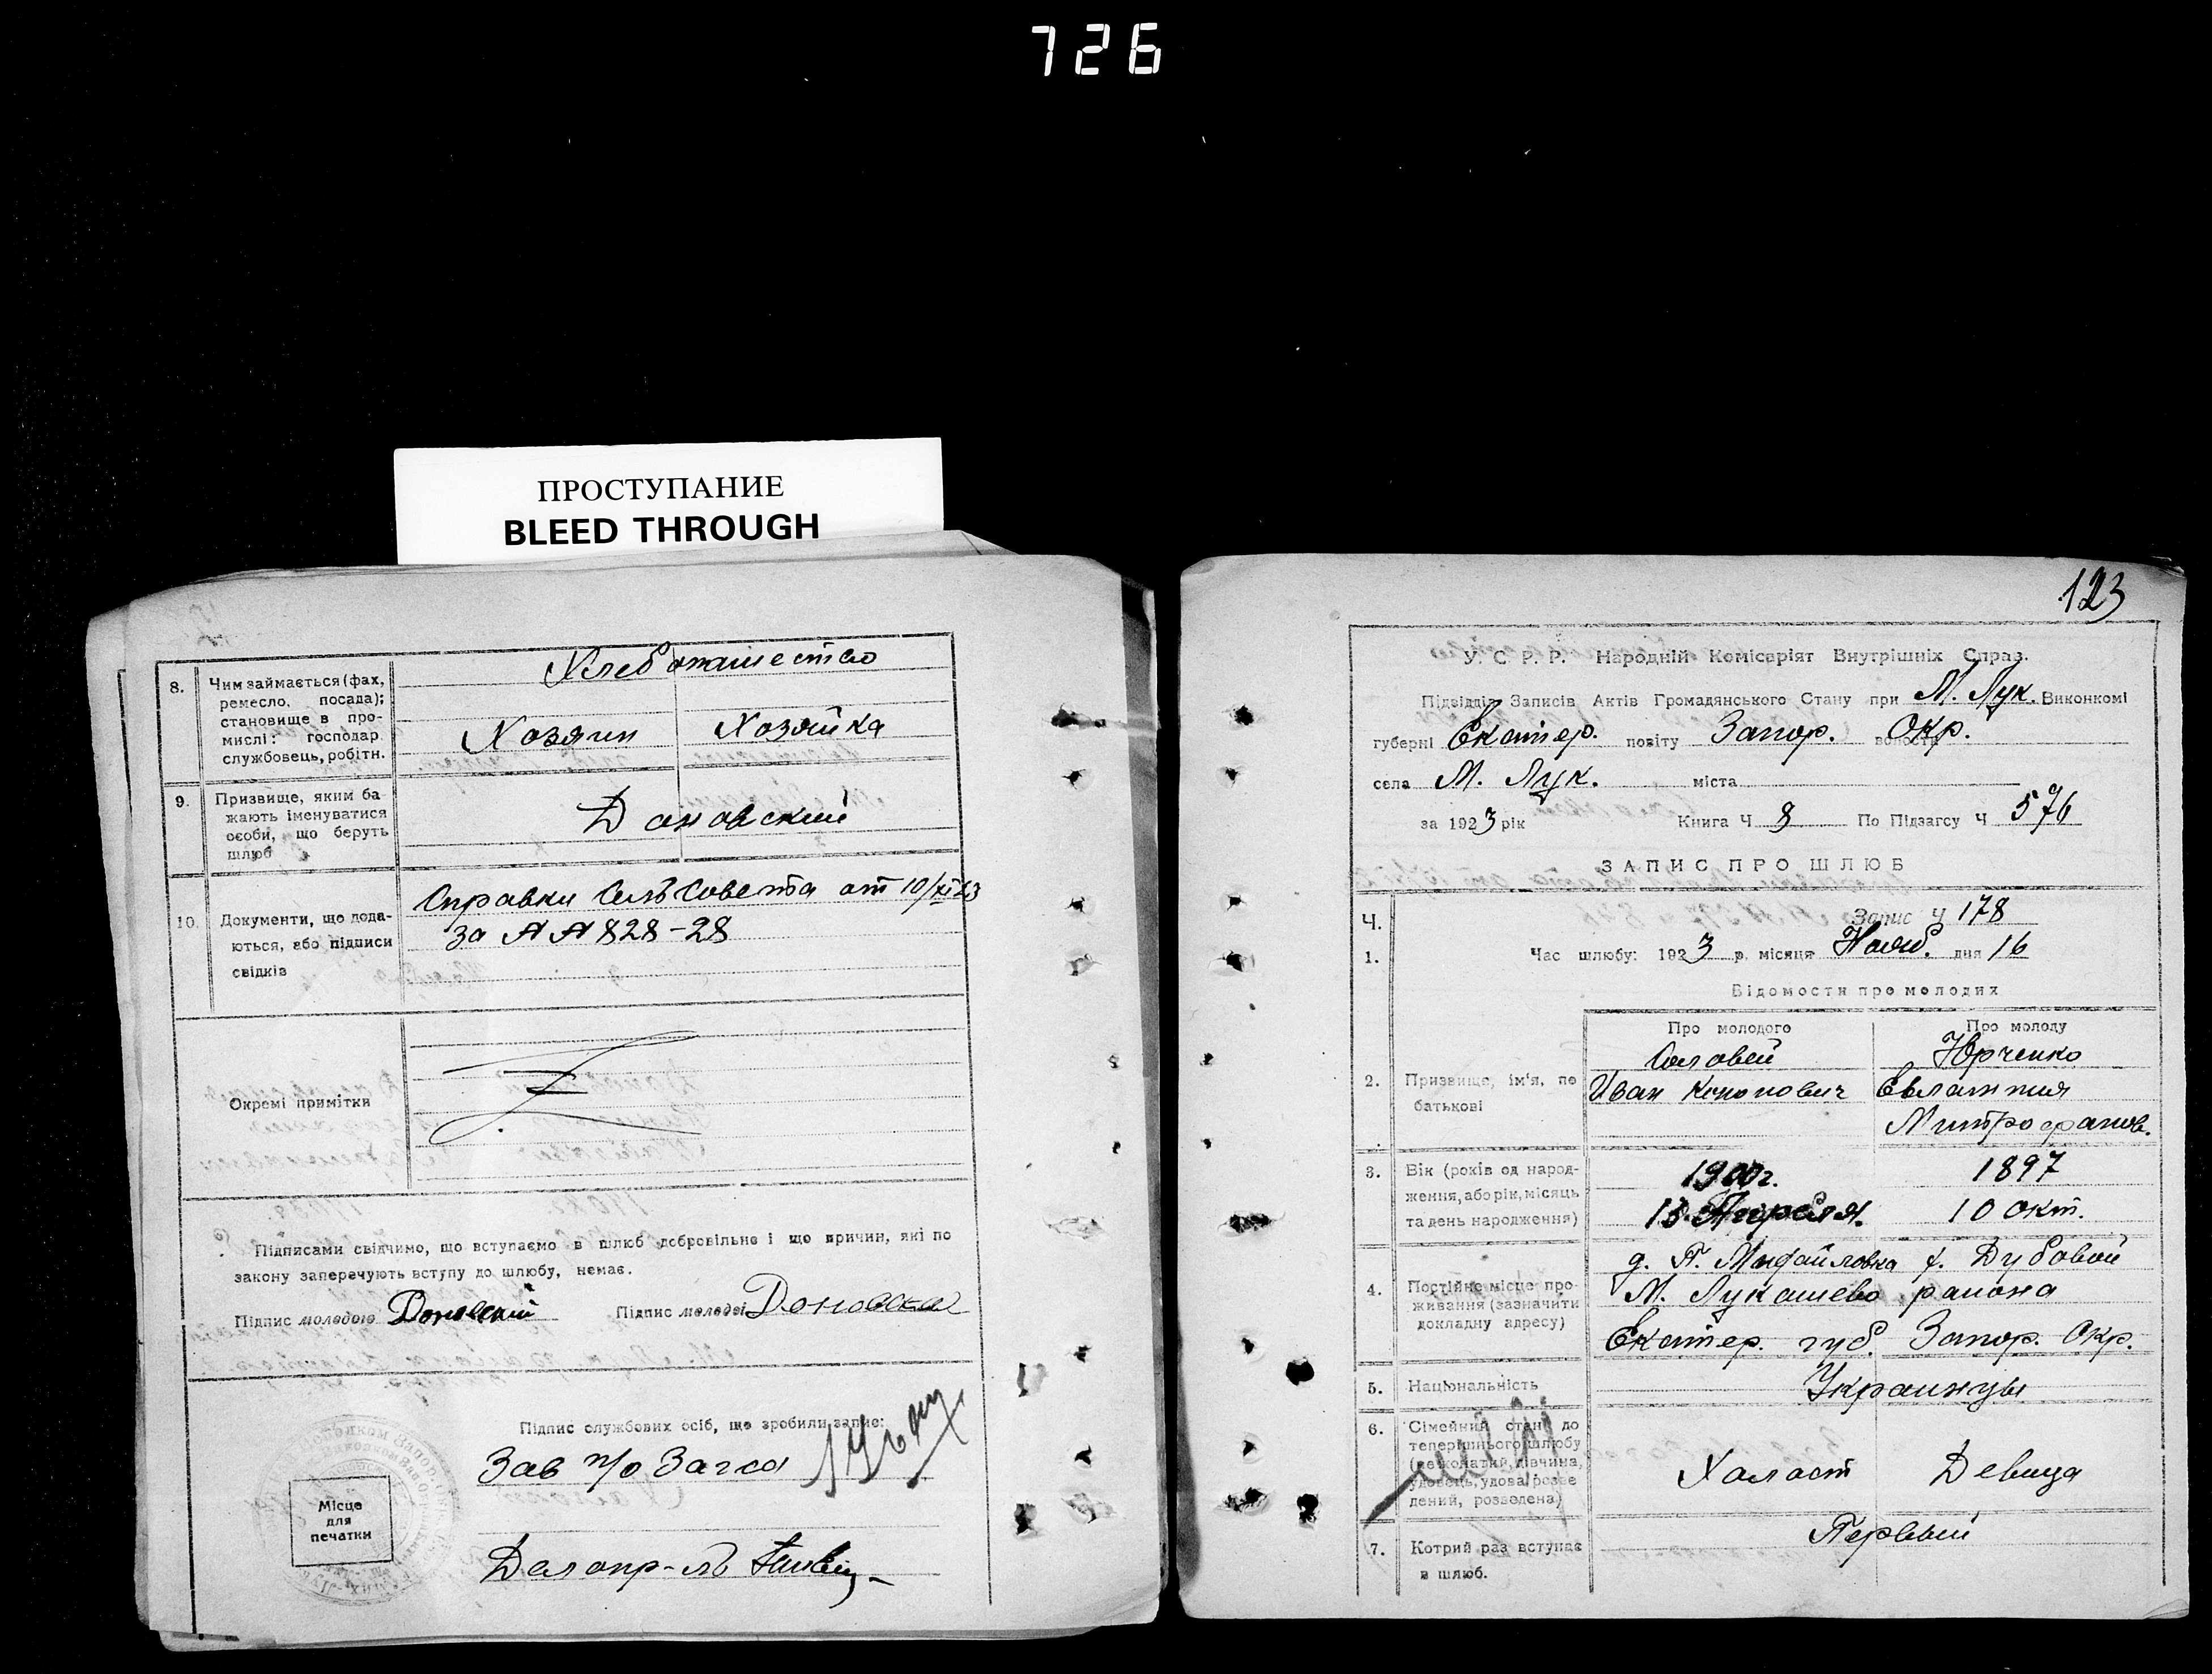 726
ПРОСТУПАНИЕ
BLEED THROUGH
8.
Чим займається (фах,
ремесло, посада);
становище в про-
мислі: господар
службовець, робітн.
Хлебопашество
Хозяин Хозяйка
9.
Призвище, яким ба-
жають іменуватися
особи, що беруть
шлюб
Доновский
10.
Документи, що дода-
ються, або підписи
свідків
Справки СельСовета от 10/XI 23
за №№ 828-28
Окремі примітки
Підписами свідчимо, що вступаємо в шлюб добровільно і що причин, які по
закону заперечують вступу до шлюбу, немає.
Підпис молодого Доновский Підпис молодої Доновская
Підпис службових осіб, що зробили запис:
Зав п/о Загса
Місце
для
печатки
Делопр-ль
123
У. С. Р. Р. Народній Комісаріят Внутрішніх Справ.
Підвідділ Записів Актів Громадянського Стану при М. Лук. Виконкомі
губерні Екатер. повіту Запор. волости Окр.
села М. Лук. міста
за 1923 рік Книга Ч 8 По Підзагсу Ч 576
ЗАПИС ПРО ШЛЮБ
Ч. Запис Ч 178
1. Час шлюбу: 1923 р. місяця Нояб. дня 16
Відомости про молодих
Про молодого Про молоду
2. Призвище, ім'я, по
батькові
Соловей Юрченко
Иван Кононович Евлампия
Митрофанов.
3. Вік (років од народ-
ження, або рік, місяць
та день народження)
1900 г. 1897
15 Апреля. 10 окт.
4. Постійне місце про-
живання (зазначити
докладну адресу)
д. П. Михайловка х. Дубовой
М. Лукашево района
Екатер. губ. Запор. Окр.
5. Національність
Украинцы
6. Сімейний стан до
теперішнього шлюбу
(нежонатий, дівчина,
удовець, удова, розве
дений, розведена)
Холост Девица
7. Котрий раз вступає
в шлюб.
Первый